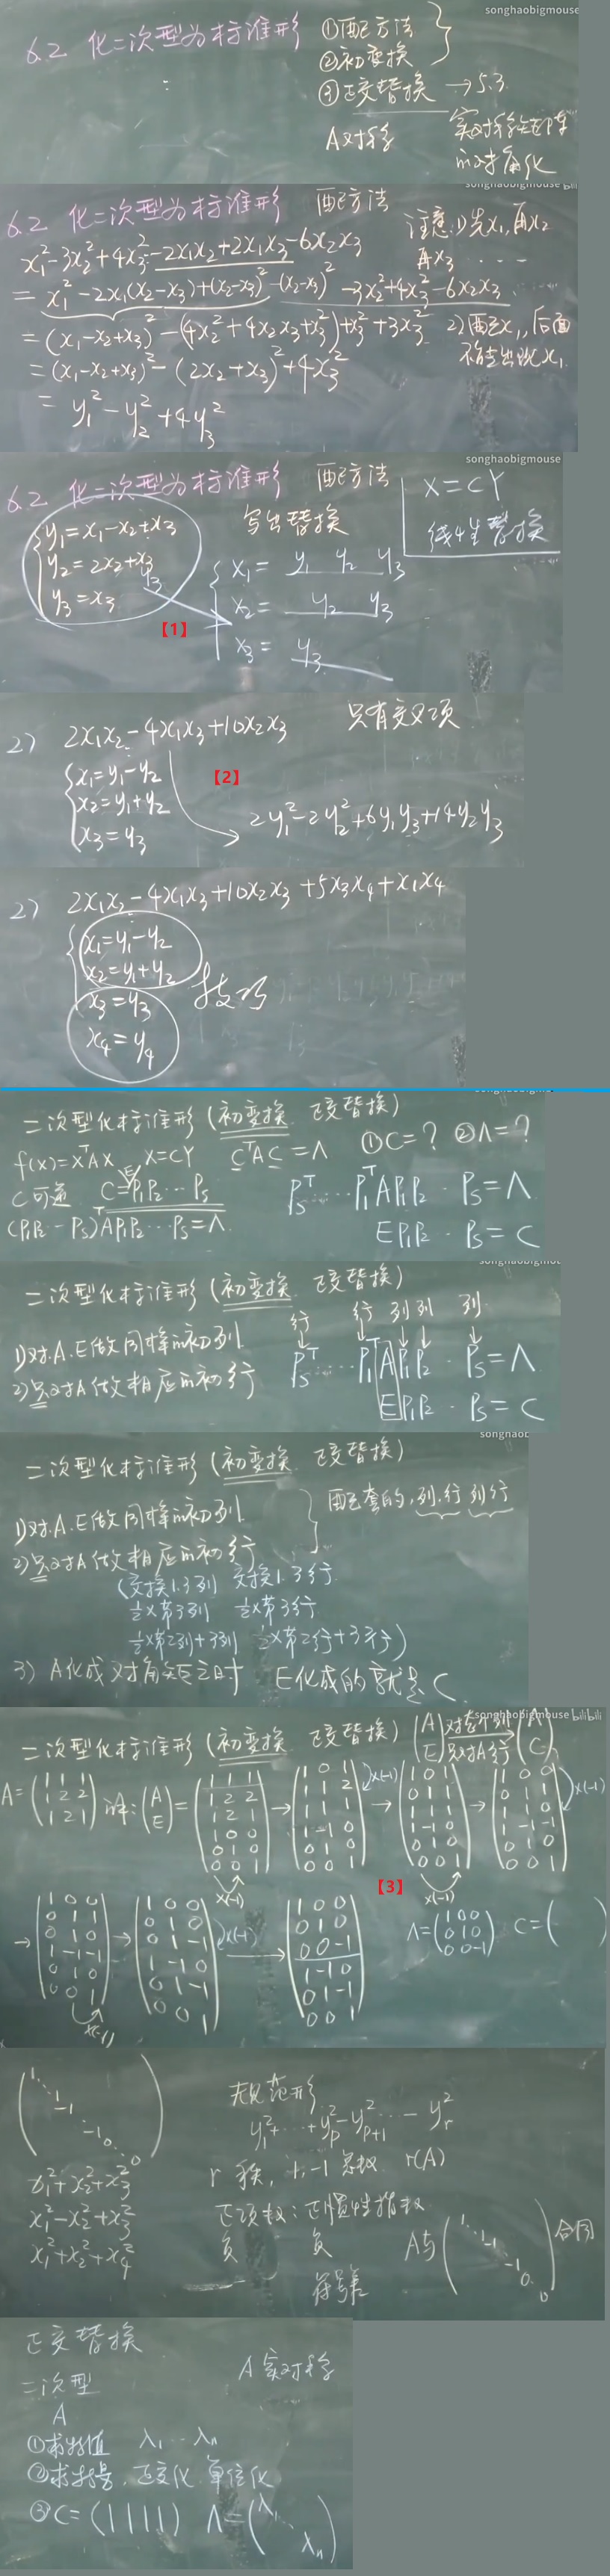 songhaobigmouse
6.2 化二次型为标准形 ①配方法
②初变换
③正交替换 → 5.3
A对称 实对称矩阵
的对角化
songhaobigmouse bili
6.2 化二次型为标准形 配方法
注意:1)先x₁,再x₂
再x₃ ....
x₁²-3x₂²+4x₃²-2x₁x₂+2x₁x₃-6x₂x₃
= x₁²-2x₁(x₂-x₃)+(x₂-x₃)²-(x₂-x₃)²-3x₂²+4x₃²-6x₂x₃
= (x₁-x₂+x₃)²-(4x₂²+4x₂x₃+x₃²)+x₃²+3x₃²
2)配完x₁,后面
不能出现x₁.
= (x₁-x₂+x₃)²-(2x₂+x₃)²+4x₃²
= y₁²-y₂²+4y₃²
songhaobigmouse
6.2 化二次型为标准形 配方法
X=CY
线性替换
y₁=x₁-x₂+x₃
y₂=2x₂+x₃
y₃=x₃
y₃
写出替换
x₁= y₁ y₂ y₃
x₂= y₂ y₃
x₃= y₃
【1】
2) 2x₁x₂-4x₁x₃+10x₂x₃ 只有交叉项
x₁=y₁-y₂
x₂=y₁+y₂
x₃=y₃
【2】
2y₁²-2y₂²+6y₁y₃+14y₂y₃
2) 2x₁x₂-4x₁x₃+10x₂x₃+5x₃x₄+x₁x₄
x₁=y₁-y₂
x₂=y₁+y₂
x₃=y₃
x₄=y₄
技巧
二次型化标准形(初变换 正交替换)
f(x)=XᵀAX X=CY CᵀAC=Λ ①C=? ②Λ=?
C可逆 C=P₁P₂…Pₛ
(P₁P₂…Pₛ)ᵀAP₁P₂…Pₛ=Λ.
Pₛᵀ……P₁ᵀAP₁P₂·Pₛ=Λ.
EP₁P₂·Pₛ=C
二次型化标准形(初变换 正交替换)
1)对A.E做同样的初列.
2)只对A做相应的初行
行 行 列 列 列
Pₛᵀ……P₁ᵀAP₁P₂·Pₛ=Λ.
EP₁P₂·Pₛ=C
songhaob
二次型化标准形(初变换 正交替换)
1)对A.E做同样的初列.
2)只对A做相应的初行
配套的,列.行 列行
(交换1.3列 交换1.3行
½×第3列 ½×第3行
½×第2列+3列 ½×第2行+3行)
3) A化成对角矩阵时 E化成的就是C
songhaobigmouse bilibili
二次型化标准形(初变换 正交替换) (A E) 对整个列 只对A行 (Λ C)
A=
1 1 1
1 2 2
1 2 1
解: (A E) =
1 1 1
1 2 2
1 2 1
1 0 0
0 1 0
0 0 1
×(-1)
→
1 0 1
1 1 2
1 1 1
1 -1 0
0 1 0
0 0 1
×(-1)
→
1 0 1
0 1 1
1 1 1
1 -1 0
0 1 0
0 0 1
×(-1)
→
1 0 0
0 1 1
1 1 0
1 -1 -1
0 1 0
0 0 1
×(-1)
【3】
→
1 0 0
0 1 1
0 1 0
1 -1 -1
0 1 0
0 0 1
×(-1)
→
1 0 0
0 1 0
0 1 -1
1 -1 0
0 1 -1
0 0 1
×(-1)
→
1 0 0
0 1 0
0 0 -1
1 -1 0
0 1 -1
0 0 1
Λ=
1 0 0
0 1 0
0 0 -1
C=( )
1
⋱
1
-1
⋱
-1
0
⋱
0
规范形
y₁²+…+yₚ²-yₚ₊₁²…-yᵣ²
r 秩, 1,-1总数. r(A)
正项数:正惯性指数
负 负
符号差
x₁²+x₂²+x₃²
x₁²-x₂²+x₃²
x₁²+x₂²+x₄²
A与
1
⋱
1
-1
⋱
-1
0
⋱
0
合同
正交替换
二次型 A 实对称
A
①求特值 λ₁…λₙ
②求特量,正交化,单位化
③C=(| | | |) Λ=(λ₁ ⋱ λₙ)